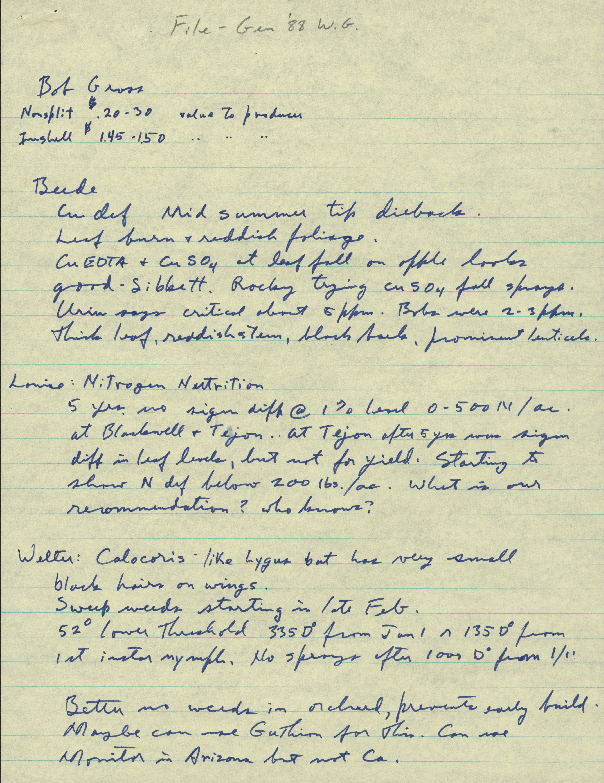 File - Gen '88 W.G.
Bob Gross
Nonsplit $.20-30 value to producer
Inshell $1.45-1.50 " " "
Beede
Cu def Mid summer tip dieback.
Leaf burn & reddish foliage.
CuEDTA & CuSO4 at leaf fall on apple looks
good - Sibbett. Rocky trying CuSO4 fall sprays.
Uriu says critical about 5 ppm. Bobs were 2-3 ppm.
Thick leaf, reddish stem, black bark, prominent lenticels.
Louise: Nitrogen Nutrition
5 yrs. no sign diff @ 1% level 0-500 N/ac.
at Blackwell & Tejon.. at Tejon after 5 yrs was sign
diff in leaf levels, but not for yield. Starting to
show N def below 200 lbs./ac. What is our
recommendation? who knows?
Welter: Calocoris - like Lygus but has very small
black hairs on wings.
Sweep weeds starting in late Feb.
52° lower Threshold 335 D° from Jan 1 135 D° from
1st instar nymph. No sprays after 1000 D° from 1/1
Better no weeds in orchard, prevents early build.
Maybe can use Guthion for this. Can use
Monitor in Arizona but not Ca.